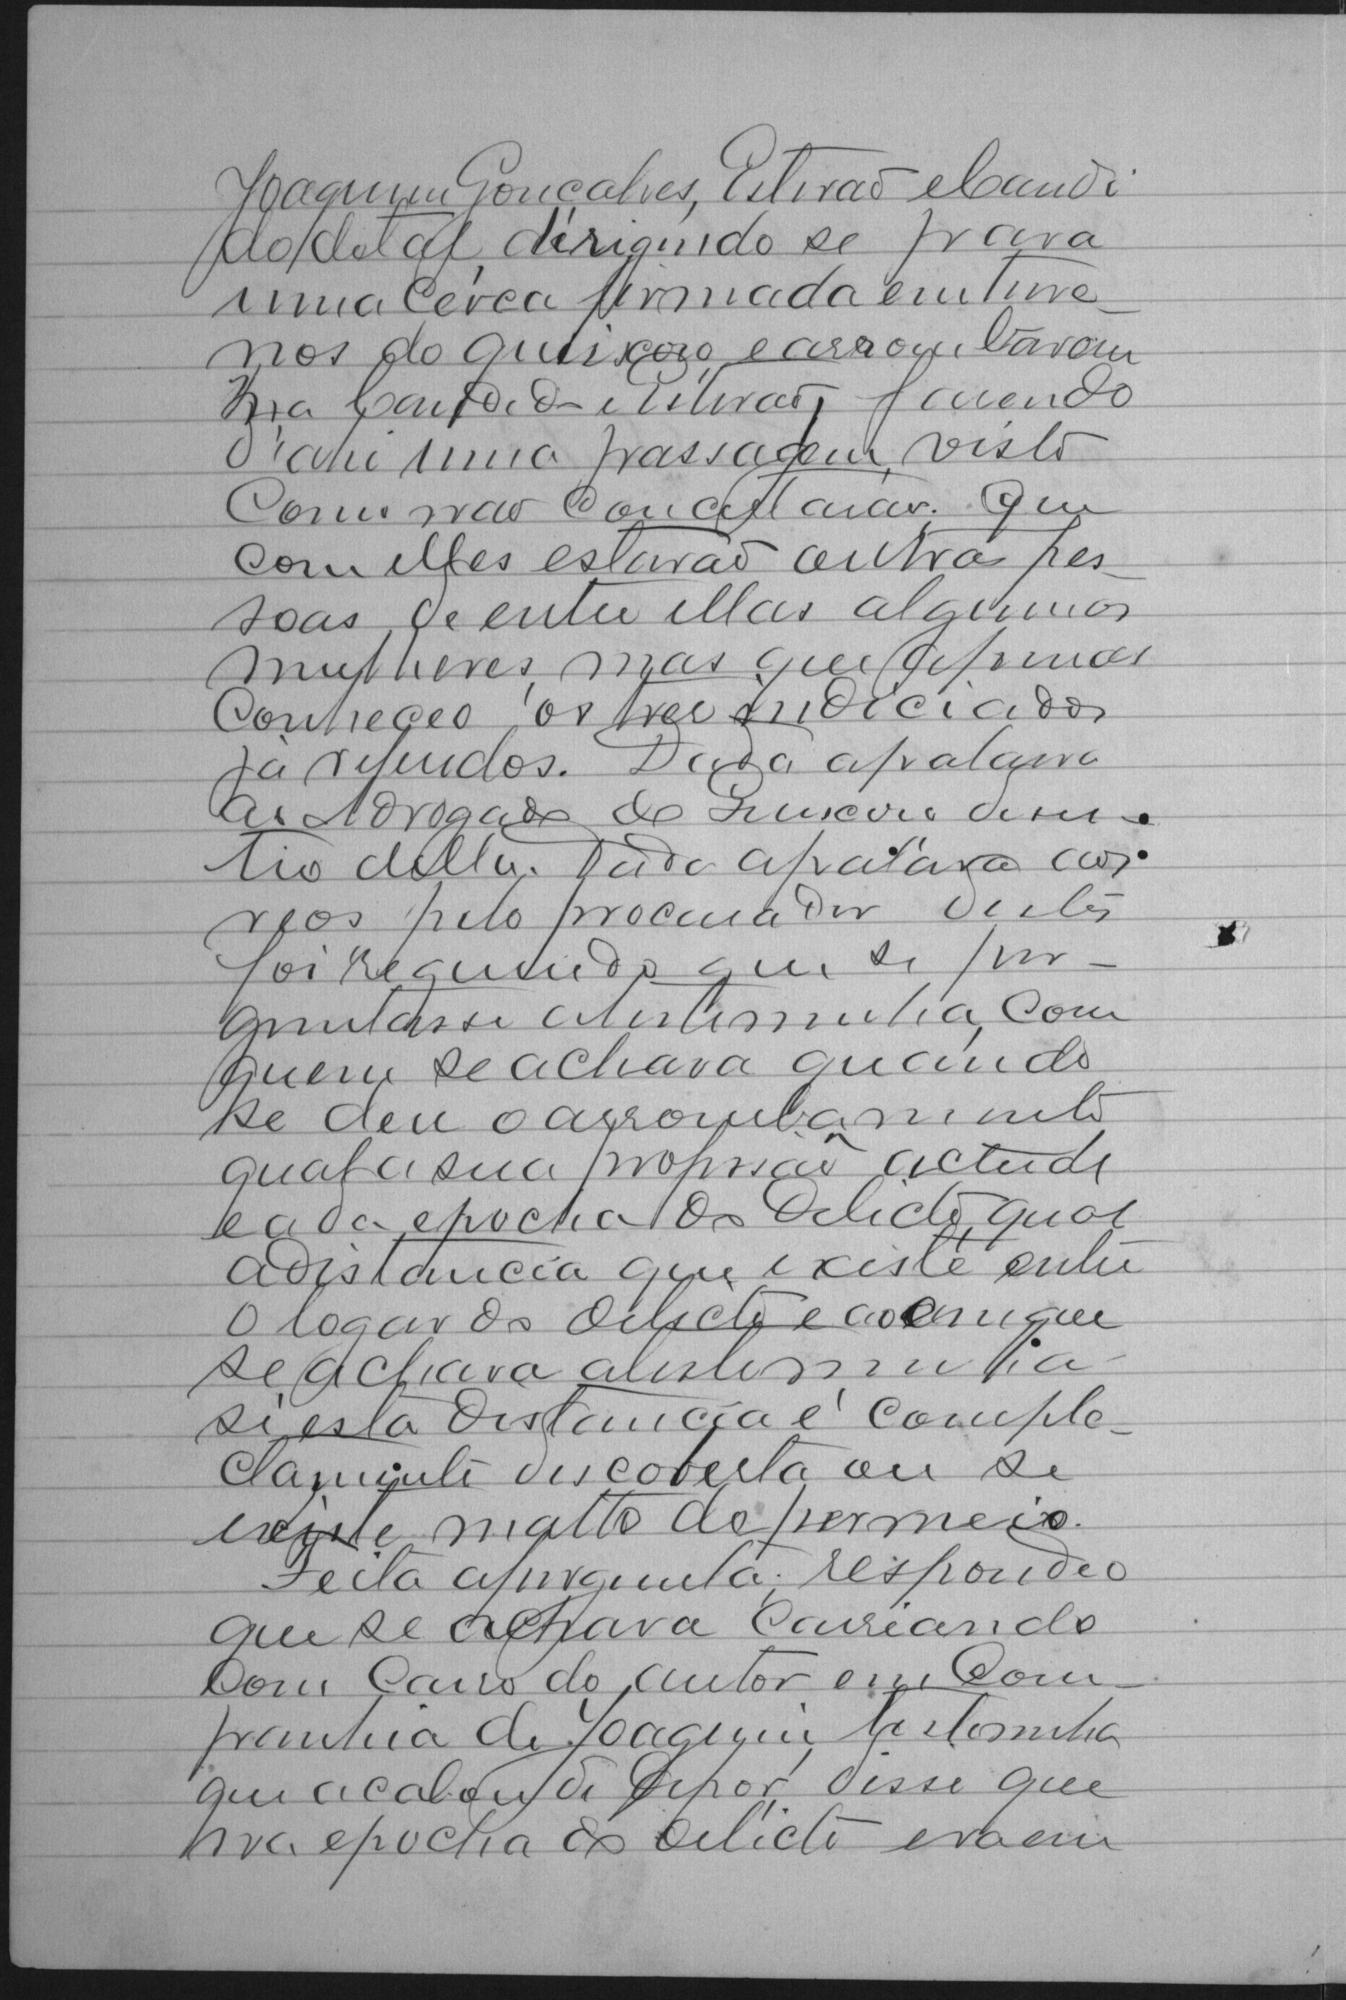 Joaquim Gonçalves, Estevaõ e Candi
do de tal, dirigindo se para
uma cerca firmada em terre-
nos do queixoso, e arrombaram
na Candido e Estevaõ, fazendo
d'ahi uma passagem, visto
como nao concertarão. Que
com elles estavaõ outras pes-
soas, de entre ellas algumas
mulheres, mas que apenas
conheceo os tres indiciados
já referidos. Dada a palavra
ao Advogado do Queixoso desis-
tio della. Dada a palavra aos
reos pelo procurador destes
foi requerido que se per-
guntasse a testemunha, com
quem se achava quando
se deu o arrombamento
qual a sua profissaõ actual
e a da epocha do delicto, qual
a distancia que existe entre
o logar do delicto e ao em que
se achava a testemunha
si esta distancia é comple-
ctamente descoberta ou se
existe matto de permeio.
Feita a pergunta, respondeo
que se achava carriando
com carro do autor em com-
panhia de Joaquim, testemunha
que acabou de depor, disse que
na epocha do delicto era em